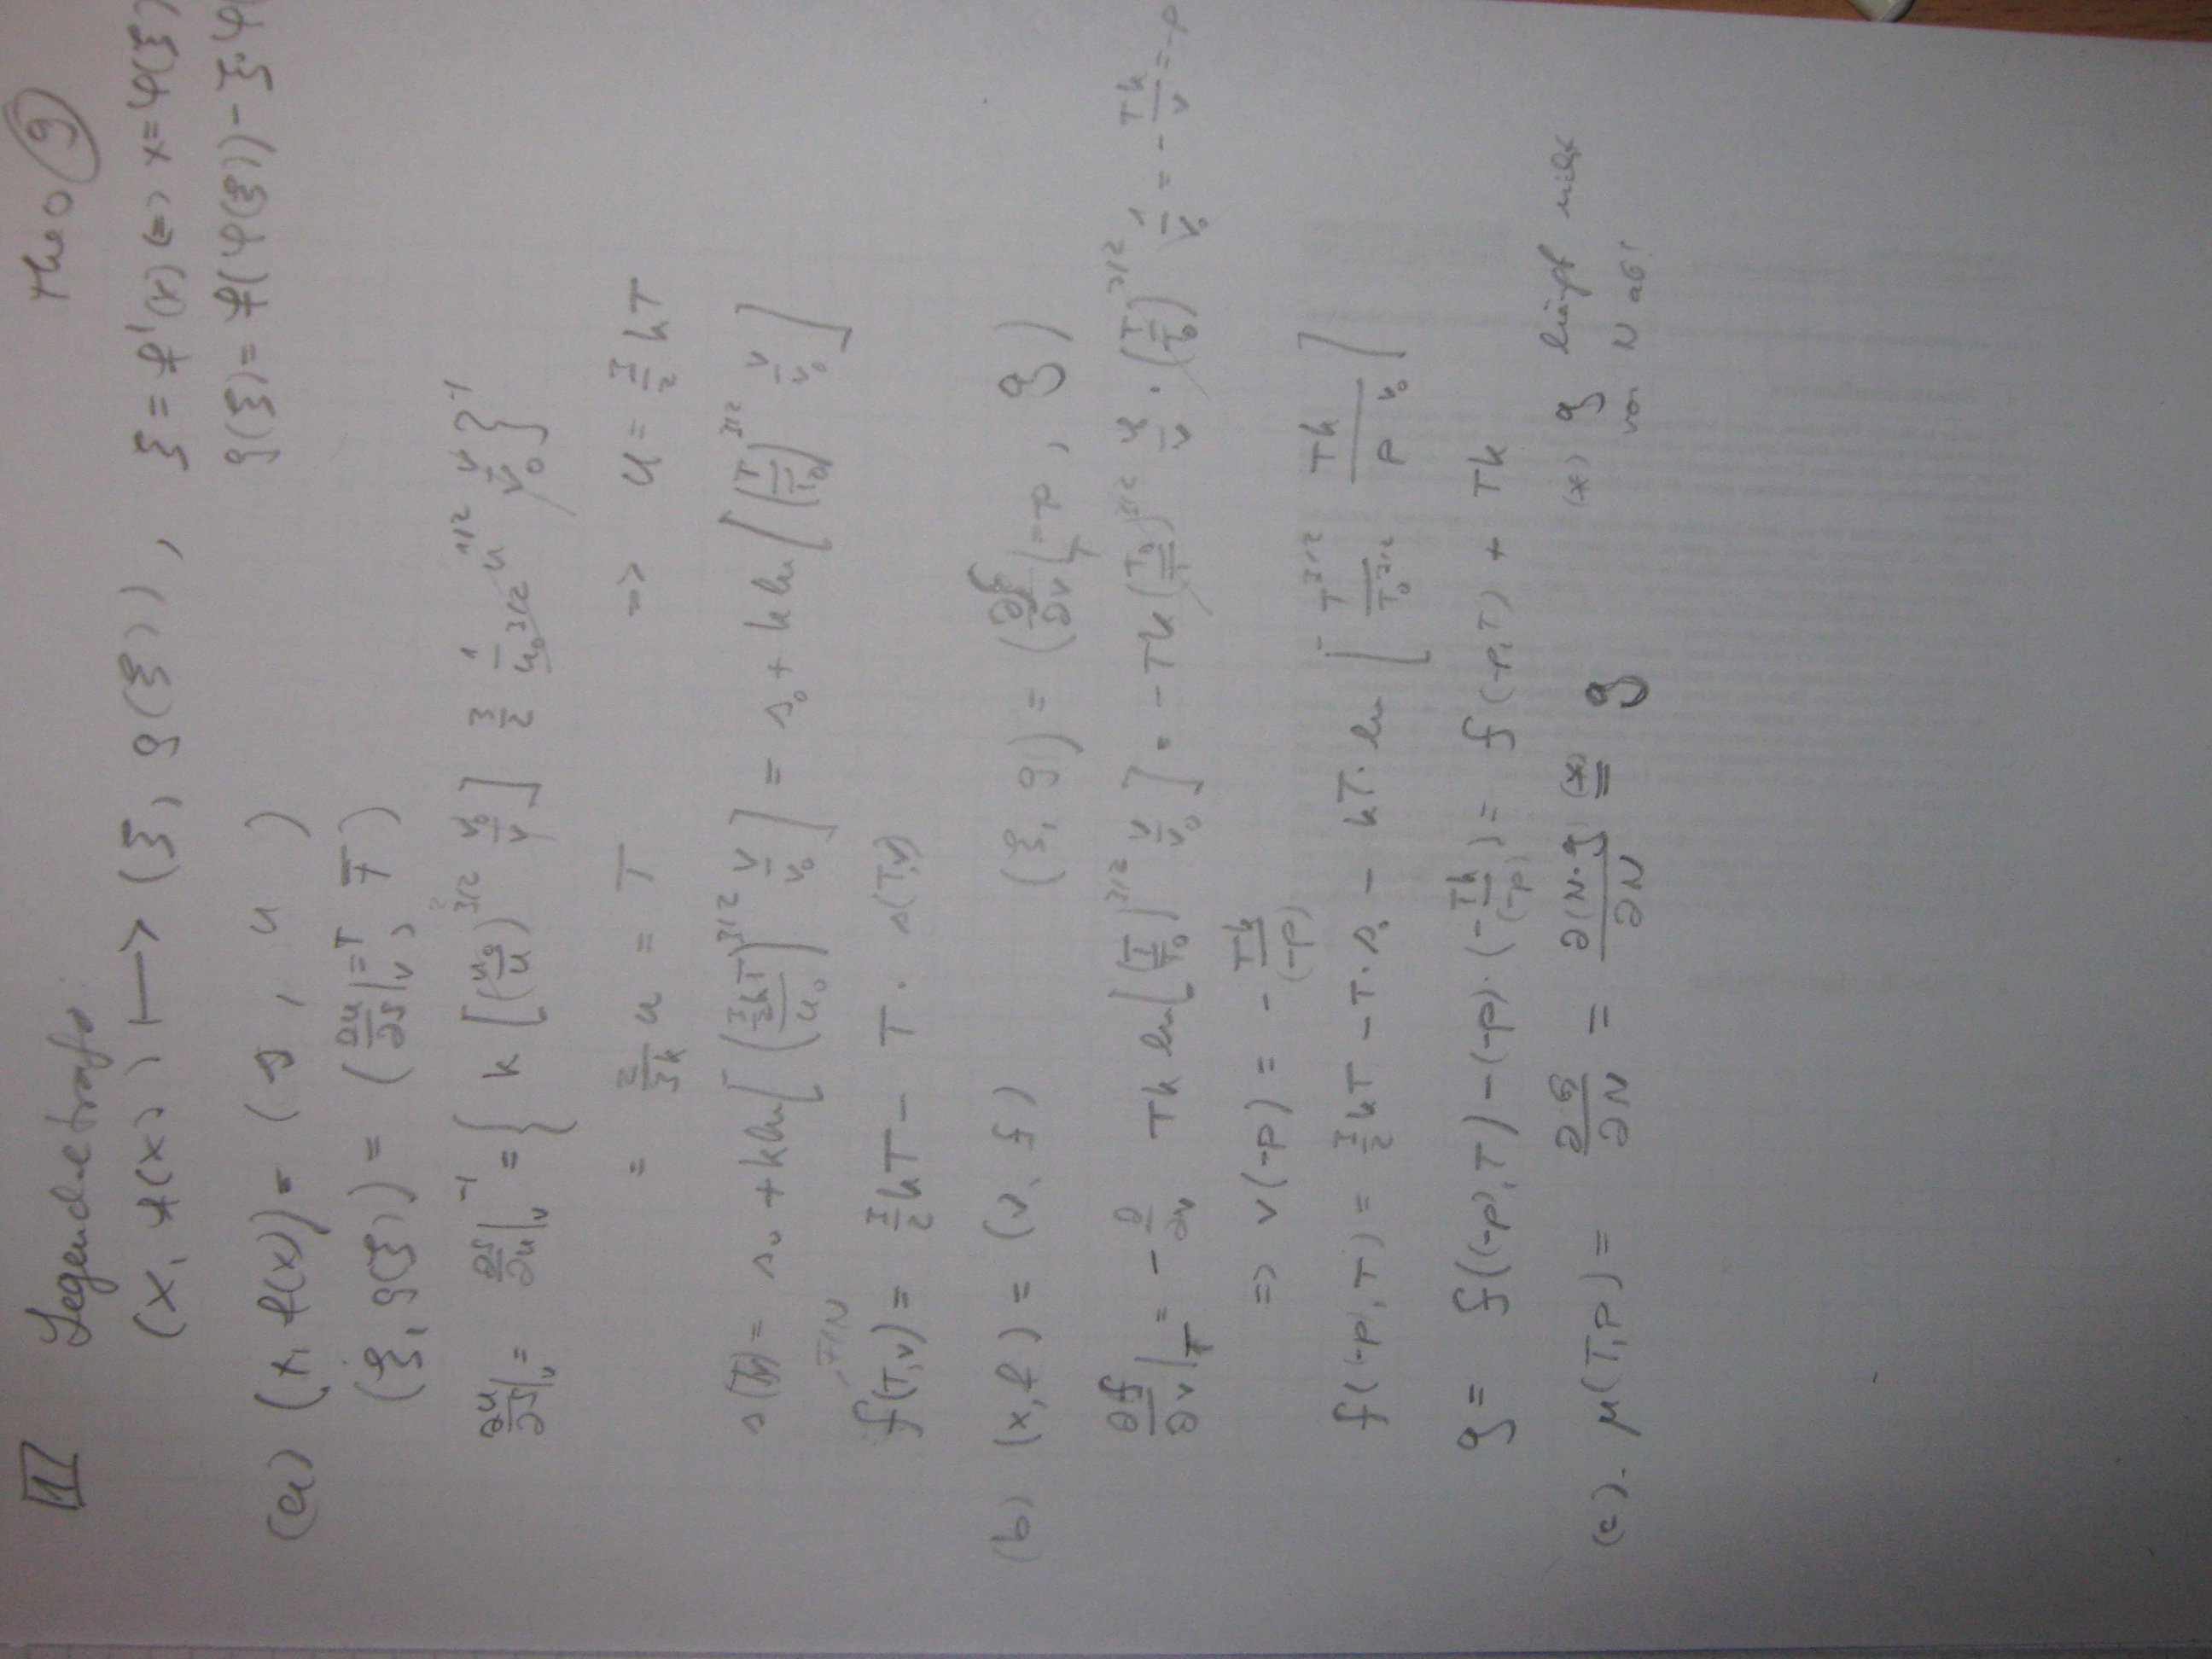 1 Legendetrafo: Theo 9
(x, f(x)) ⟼ (ξ, g(ξ)), ξ = f'(x) <=> x = φ(ξ)
g(ξ) = f(φ(ξ)) - ξ·φ(
(a) (x, f(x)) = (s, u)
(ξ, g(ξ)) = (∂u/∂s|_v = T, f)
∂u/∂s|_v = ∂s/∂u|_v^-1 = { k [(u_0/u)^3/2 v_0/v] 3/2 1/u_0^3/2 u^1/2 v/v_0 }^-1
= 2/3k u = T => u = 3/2 kT
s(T,v) = s_0 + k ln[(3/2 kT/u_0)^3/2 v/v_0] = s_0 + k ln[(T/T_0)^3/2 v/v_0]
F/N
f(T,v) = 3/2 kT - T · s(T,v)
(b) (x, f) = (v, f) (ξ, g) = (∂f/∂v|_T = -p, g)
∂f/∂v|_T = - ∂/∂v Tk ln[(T/T_0)^3/2 v/v_0] = -Tk (T_0/T)^3/2 v_0/v · (T/T_0)^3/2 1/v_0 = - Tk/v = -p
=> v(-p) = - Tk/(-p)
f((-p), T) = 3/2 kT - T·s_0 - kT · ln [T^3/2/T_0^3/2 Tk/p v_0]
g = f((-p), T) - (-p) · (- Tk/(-p)) = f(-p, T) + Tk
(c). μ(T,p) = ∂G/∂N = ∂(N·g)/∂N (*)= g (*) g hängt nicht
von N ab!